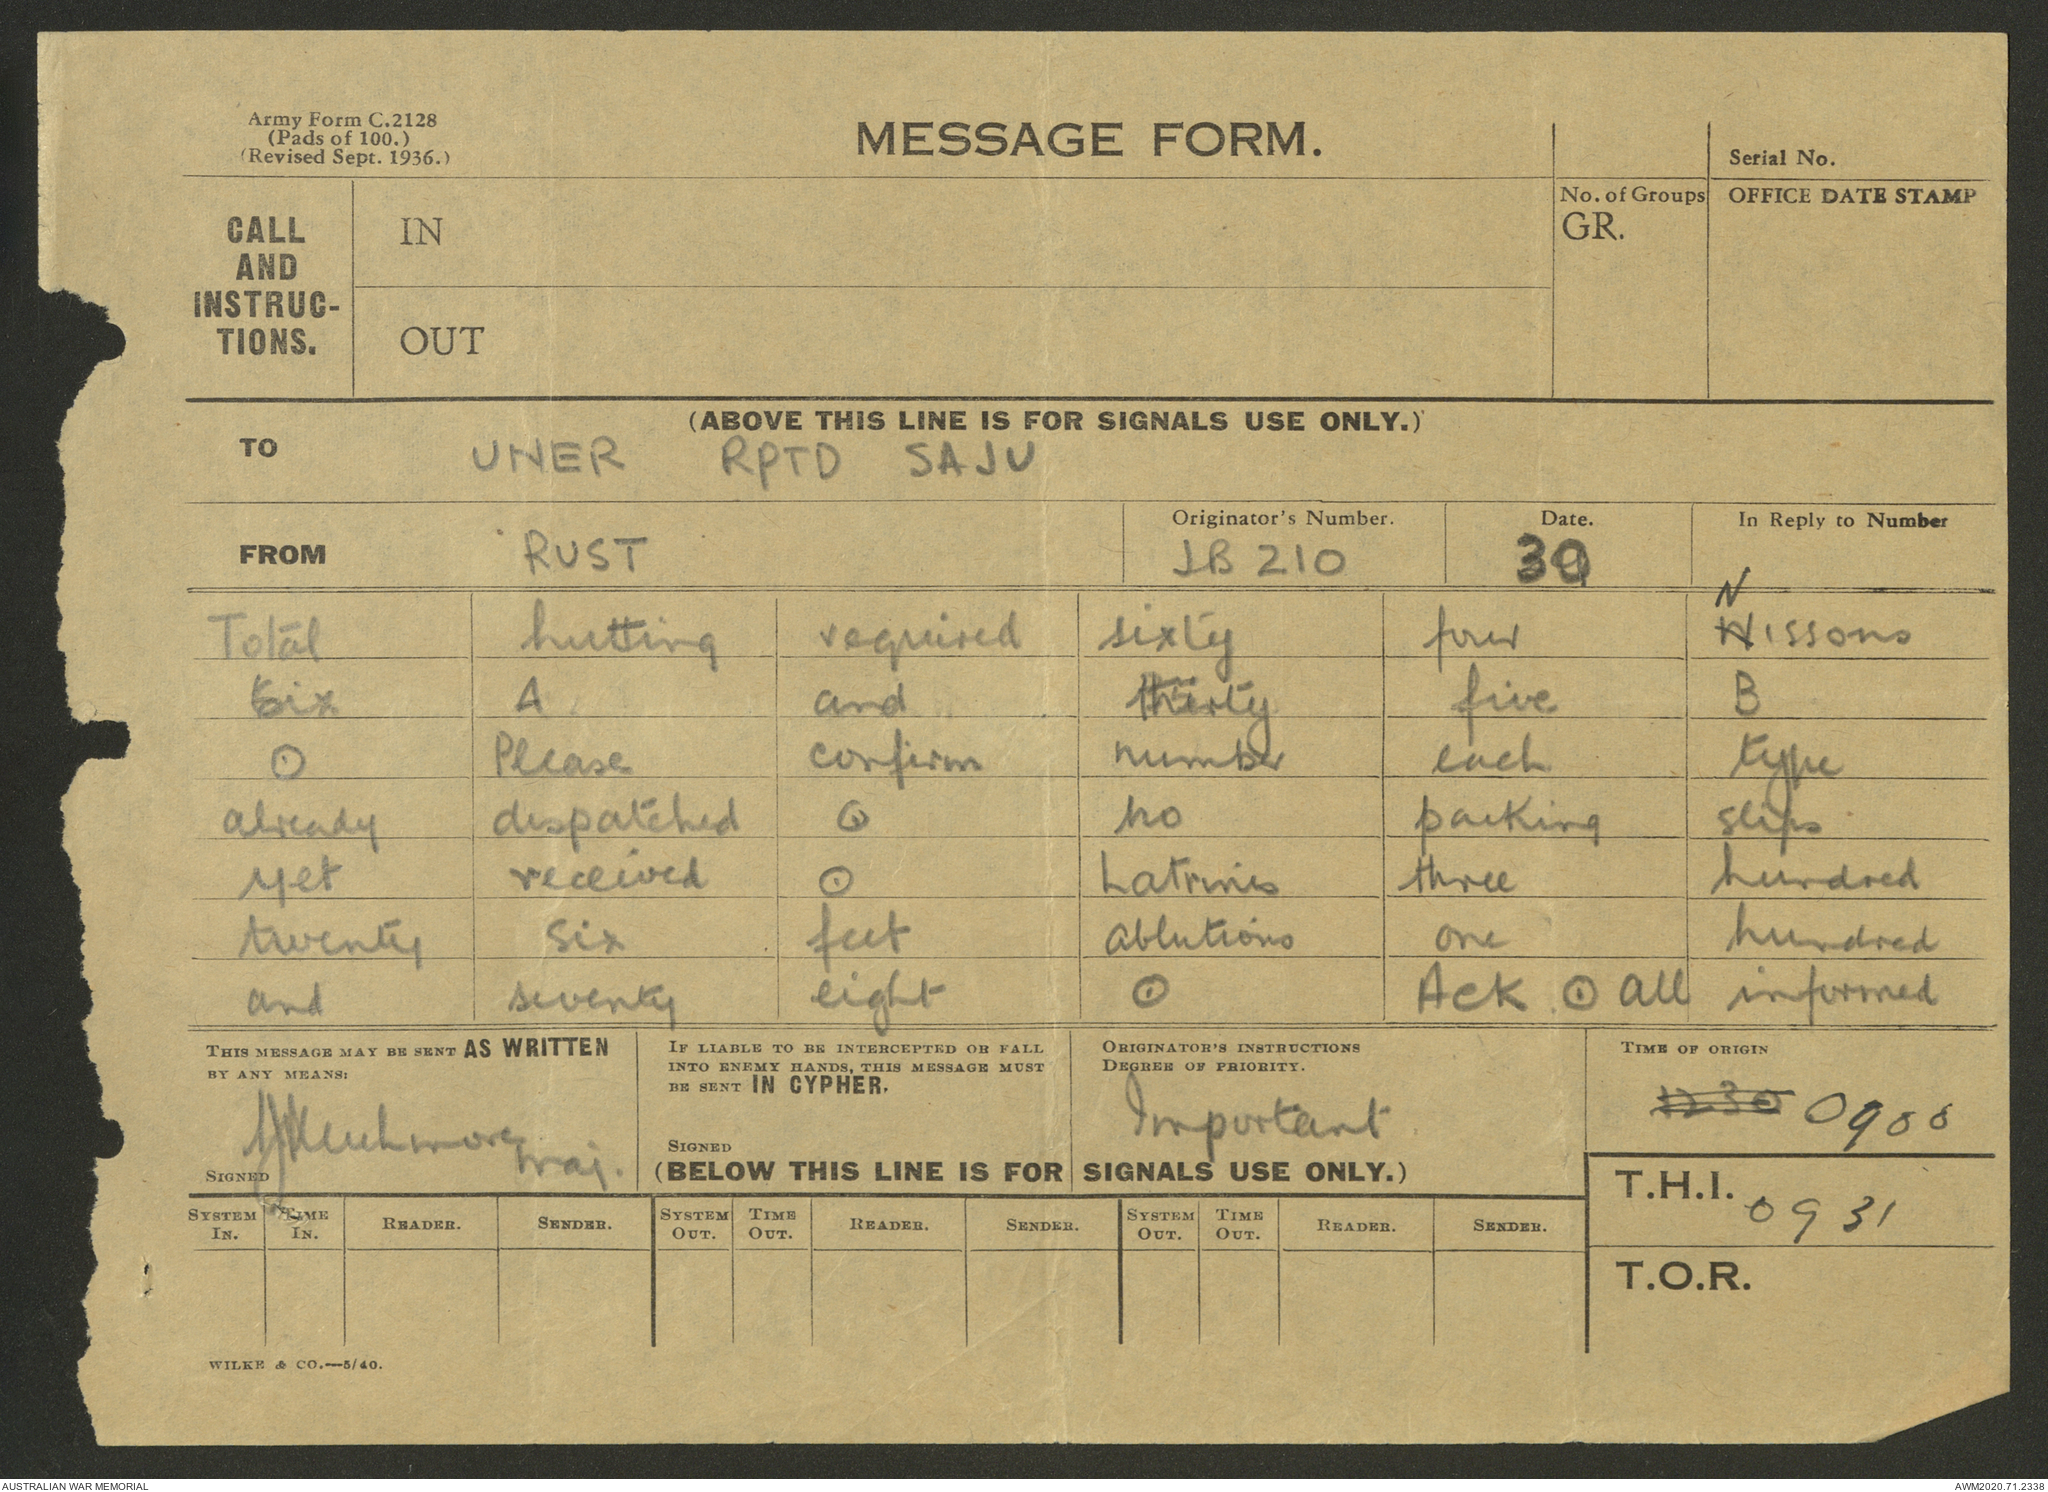 Army Form C.2128
(Pads of 100.)
(Revised Sept. 1936.)
MESSAGE FORM.
Serial No.
CALL AND INSTRUC-TIONS.
IN
OUT
No. of Groups
GR.
OFFICE DATE STAMP
(ABOVE THIS LINE IS FOR SIGNALS USE ONLY.)
TO UNER RPTD SAJU
FROM RUST
Originator's Number. JB 210
Date. 30
In Reply to Number
N
Total hutting required sixty four Nissons
six A and thirty five B
⊙ Please confirm number each type
already dispatched ⊙ no packing slips
yet received ⊙ Latrines three hundred
twenty six feet ablutions one hundred
and seventy eight ⊙ Ack ⊙ all informed
THIS MESSAGE MAY BE SENT AS WRITTEN
BY ANY MEANS:
SIGNED Maj.
IF LIABLE TO BE INTERCEPTED OR FALL
INTO ENEMY HANDS, THIS MESSAGE MUST
BE SENT IN CYPHER.
SIGNED
ORIGINATOR'S INSTRUCTIONS
DEGREE OF PRIORITY.
Important
TIME OF ORIGIN
1230 0900
(BELOW THIS LINE IS FOR SIGNALS USE ONLY.)
T.H.I. 0931
T.O.R.
SYSTEM IN. TIME IN. READER. SENDER. SYSTEM OUT. TIME OUT. READER. SENDER. SYSTEM OUT. TIME OUT. READER. SENDER.
WILKE & CO.—5/40.
AUSTRALIAN WAR MEMORIAL
AWM2020.71.2338